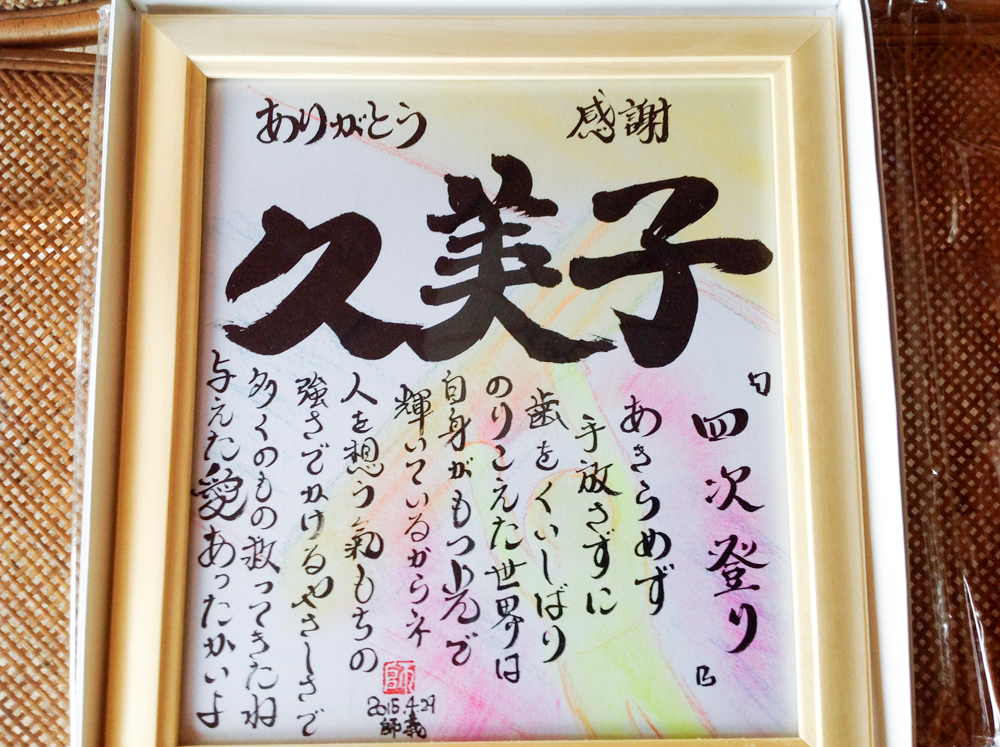 ありがとう 感謝
久美子
『四次登り』
あきらめず
手放さずに
歯をくいしばり
のりこえた世界は
自身がもつ光で
輝いているからネ
人を想う氣もちの
強さでかけるやさしさで
多くのもの救ってきたね
与えた愛あったかいよ
2015.4.29
師義